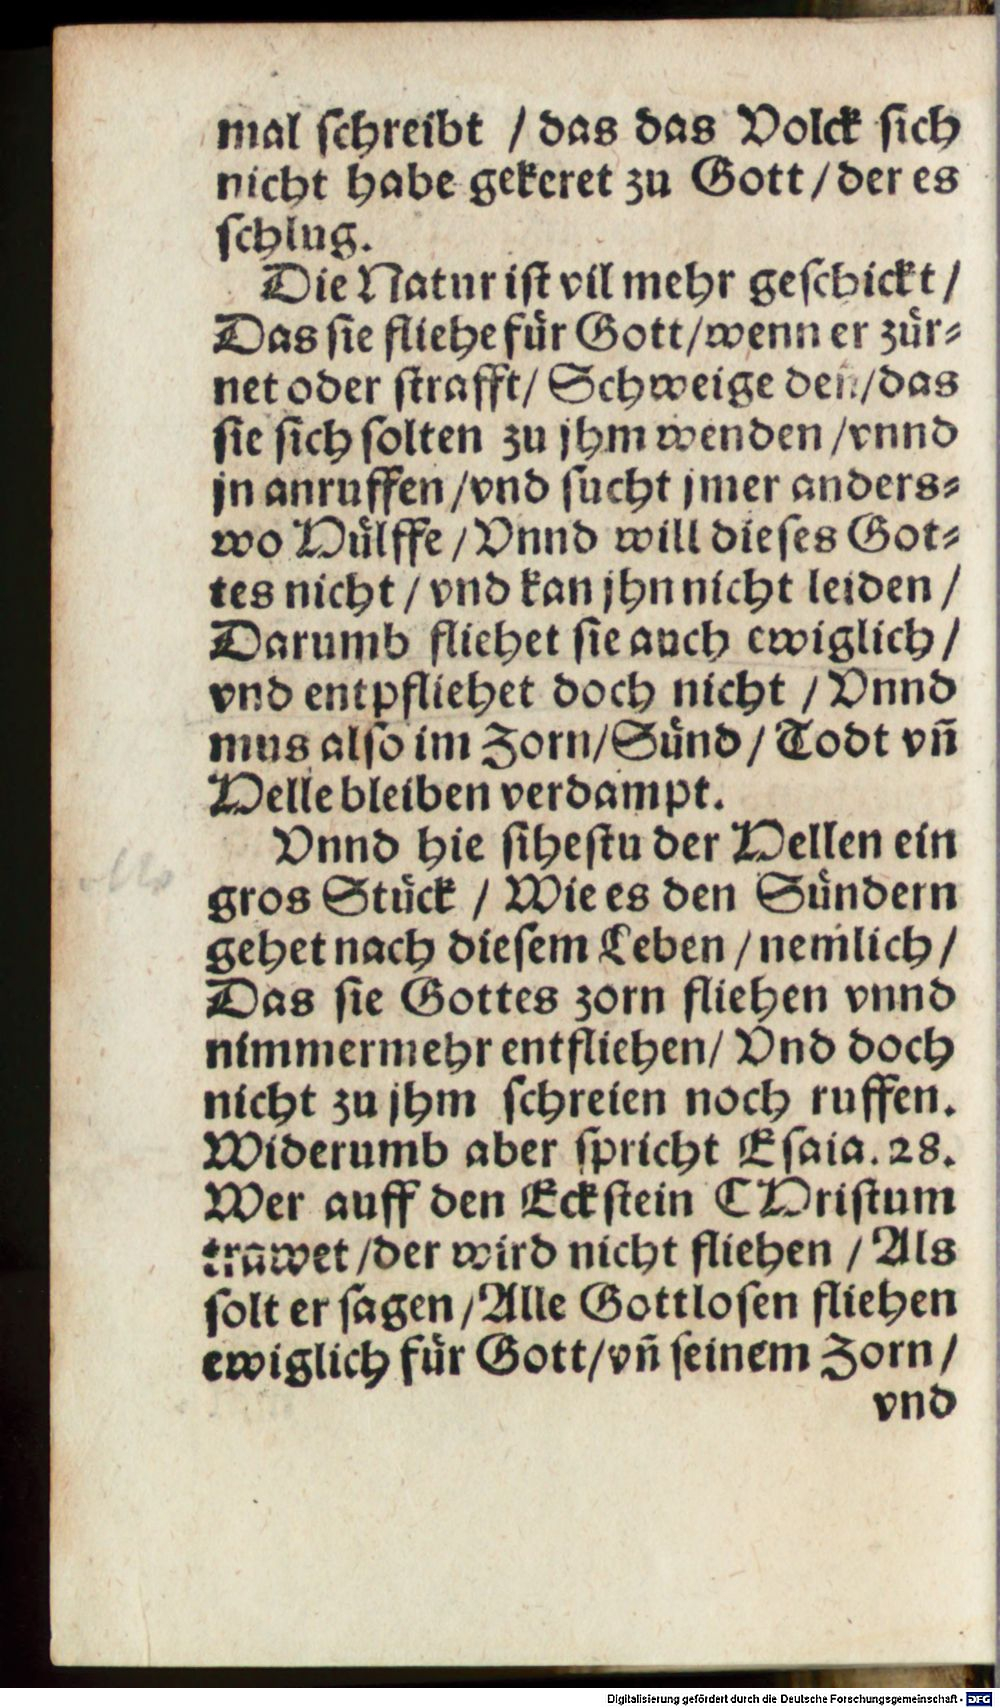 mal ſchreibt / das das Volck ſich
nicht habe gekeret zu Gott / der es
ſchlug.
Die Natur iſt vil mehr geſchickt /
Das ſie fliehe für Gott / wenn er zür⸗
net oder ſtrafft / Schweige den / das
ſie ſich ſolten zu jhm wenden / vnnd
jn anruffen / vnd ſucht jmer anders⸗
wo Hülffe / Vnnd will dieſes Got⸗
tes nicht / vnd kan jhn nicht leiden /
Darumb fliehet ſie auch ewiglich /
vnd entpfliehet doch nicht / Vnnd
mus alſo im Zorn / Sünd / Todt vn̄
Helle bleiben verdampt.
Vnnd hie ſiheſtu der Hellen ein
gros Stück / Wie es den Sündern
gehet nach dieſem Leben / nemlich /
Das ſie Gottes zorn fliehen vnnd
nimmermehr entfliehen / Vnd doch
nicht zu jhm ſchreien noch ruffen.
Widerumb aber ſpricht Eſaia. 28.
Wer auff den Eckſtein CHriſtum
trawet / der wird nicht fliehen / Als
ſolt er ſagen / Alle Gottloſen fliehen
ewiglich für Gott / vn̄ ſeinem Zorn /
vnd
Digitalisierung gefördert durch die Deutsche Forschungsgemeinschaft - DFG